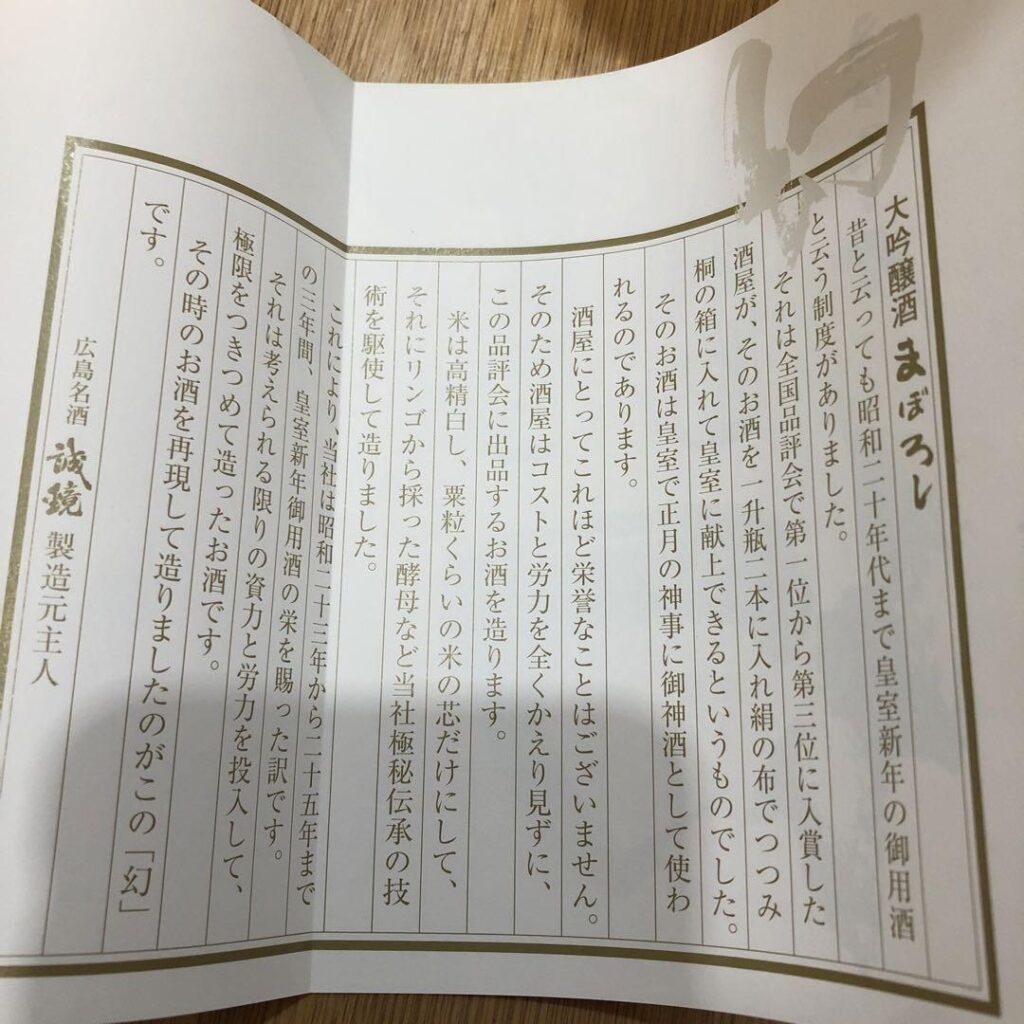 幻
大吟醸酒 まぼろし
昔と云っても昭和二十年代まで皇室新年の御用酒
と云う制度がありました。
それは全国品評会で第一位から第三位に入賞した
酒屋が、そのお酒を一升瓶二本に入れ絹の布でつつみ
桐の箱に入れて皇室に献上できるというものでした。
そのお酒は皇室で正月の神事に御神酒として使わ
れるのであります。
酒屋にとってこれほど栄誉なことはございません。
そのため酒屋はコストと労力を全くかえり見ずに、
この品評会に出品するお酒を造ります。
米は高精白し、粟粒くらいの米の芯だけにして、
それにリンゴから採った酵母など当社極秘伝承の技
術を駆使して造りました。
これにより、当社は昭和二十三年から二十五年まで
の三年間、皇室新年御用酒の栄を賜った訳です。
それは考えられる限りの資力と労力を投入して、
極限をつきつめて造ったお酒です。
その時のお酒を再現して造りましたのがこの「幻」
です。
広島名酒 誠鏡 製造元主人